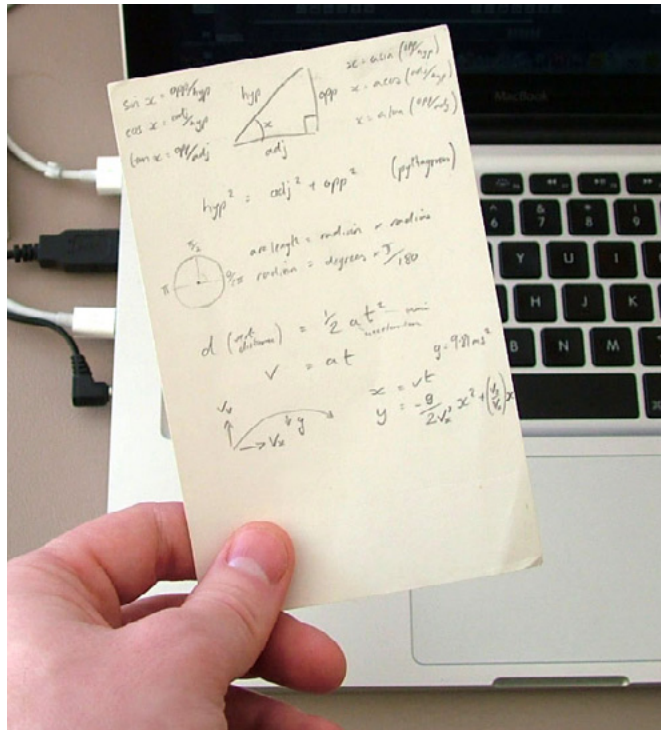 sin x = opp/hyp
cos x = adj/hyp
tan x = opp/adj
hyp
opp
x
adj
x = asin (opp/hyp)
x = acos (adj/hyp)
x = atan (opp/adj)
hyp² = adj² + opp² (pythagoras)
π/2
π
0/2π
arc length = radius × radians
radians = degrees × π/180
d (distance) = 1/2 a t²
v = at
g = 9.81 ms²
x = vt
y = -g/2Vx² x² + (Vy/Vx) x
Vy
g
Vx
MacBook
6
7
8
9
Y
U
I
H
J
K
B
N
M